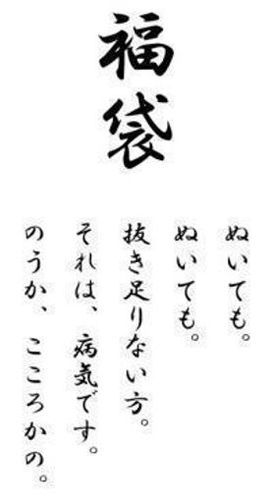 福袋
ぬいても。
ぬいても。
抜き足りない方。
それは、病気です。
のうか、こころかの。